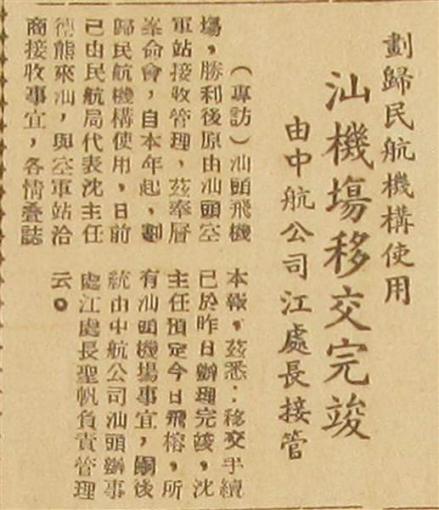 劃歸民航機構使用
汕機塲移交完竣
由中航公司江處長接管
（專訪）汕頭飛機
場，勝利後原由汕頭空
軍站接收管理，茲奉層
峯命會，自本年起，劃
歸民航機構使用，日前
已由民航局代表沈主任
德熊來汕，與空軍站洽
商接收事宜，各情疊誌
本報，茲悉：移交手續
已於昨日辦理完竣，沈
主任預定今日飛榕，所
有汕頭機場事宜，嗣後
統由中航公司汕頭辦事
處江處長聖帆負責管理
云。